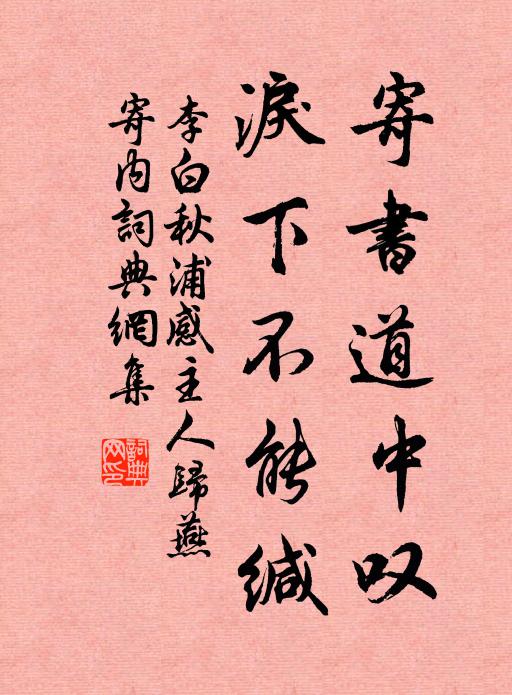 寄書道中叹
淚下不能緘
李白秋浦感主人歸燕
寄内詞典網集
詞典网印